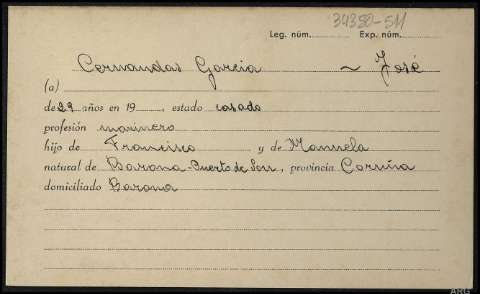 34380-511
Leg. núm. Exp. núm.
Cernandas Garcia ~ José
(a)
de 29 años en 19, estado casado
profesión marinero
hijo de Francisco y de Manuela
natural de Barona-Puerto de Son, provincia Coruña
domiciliado Barona
ARG